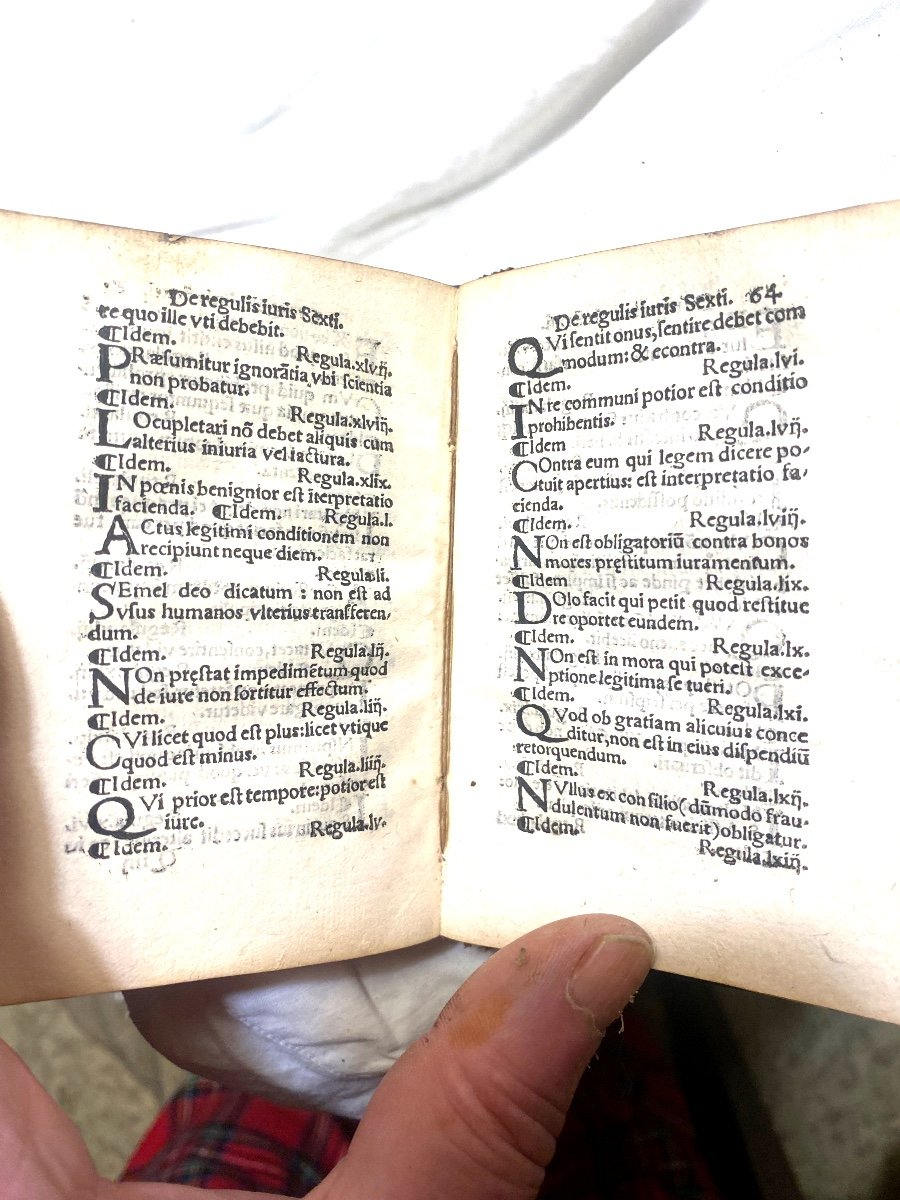 De regulis iuris Sexti.
re quo ille vti debebit.
¶Idem. Regula.xlvij.
PRæsumitur ignorãtia vbi scientia
non probatur.
¶Idem. Regula.xlviij.
LOcupletari nõ debet aliquis cum
alterius iniuria vel iactura.
¶Idem. Regula.xlix.
IN pœnis benignior est ĩterpretatio
facienda. ¶Idem. Regula.l.
ACtus legitimi conditionem non
recipiunt neque diem.
¶Idem. Regula.li.
SEmel deo dicatum : non est ad
vsus humanos vlterius transferen,
dum.
¶Idem. Regula.lij.
NOn pręstat impedimẽtum quod
de iure non sortitur effectum.
¶Idem. Regula.liij.
CVi licet quod est plus:licet vtique
quod est minus.
¶Idem. Regula.liiij.
QVi prior est tempore:potior est
iure. Regula.lv.
¶Idem.
De regulis iuris Sexti. 64
QVi sentit onus,sentire debet com
modum: & econtra.
¶Idem. Regula.lvi.
IN re communi potior est conditio
prohibentis.
¶Idem Regula.lvij.
COntra eum qui legem dicere po-
tuit apertius: est interpretatio fa-
cienda.
¶Idem. Regula.lviij.
NOn est obligatoriũ contra bonos
mores pręstitum iuramentum.
¶Idem Regula.lix.
DOlo facit qui petit quod restitue
re oportet eundem.
¶Idem. Regula.lx.
NOn est in mora qui potest exce-
ptione legitima se tueri.
¶Idem. Regula.lxi.
QVod ob gratiam alicuius conce
ditur,non est in eius dispendiũ
retorquendum.
¶Idem. Regula.lxij.
NVllus ex consilio(dũmodo frau-
dulentum non fuerit)obligatur.
¶Idem. Regula.lxiij.